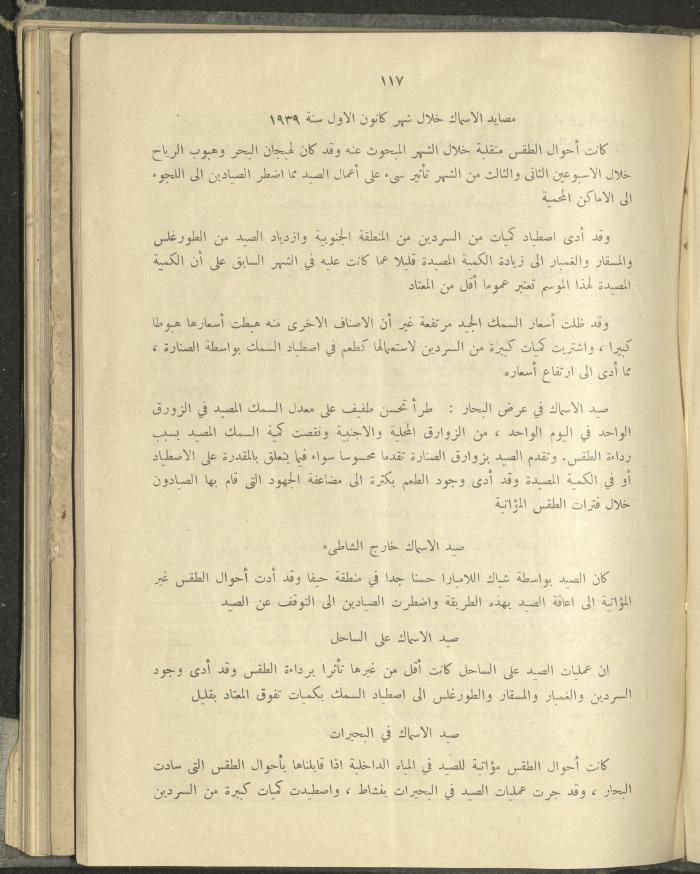 ١١٧
مصايد الاسماك خلال شهر كانون الاول سنة ١٩٣٩
كانت أحوال الطقس متقلبة خلال الشهر المبحوث عنه وقد كان لهيجان البحر وهبوب الرياح
خلال الاسبوعين الثانى والثالث من الشهر تأثير سىء على أعمال الصيد مما اضطر الصيادين الى اللجوء
الى الاماكن المحمية
وقد أدى اصطياد كميات من السردين من المنطقة الجنوبية وازدياد الصيد من الطورغلس
والمسقار والغمبار الى زيادة الكمية المصيدة قليلا عما كانت عليه في الشهر السابق على أن الكمية
المصيدة لهذا الموسم تعتبر عموما أقل من المعتاد
وقد ظلت أسعار السمك الجيد مرتفعة غير أن الاصناف الاخرى منه هبطت أسعارها هبوطا
كبيرا ، واشتريت كميات كبيرة من السردين لاستعمالها كطعم في اصطياد السمك بواسطة الصنارة ،
مما أدى الى ارتفاع أسعاره
صيد الاسماك في عرض البحار : طرأ تحسن طفيف على معدل السمك المصيد في الزورق
الواحد في اليوم الواحد ، من الزوارق المحلية والاجنبية ونقصت كمية السمك المصيد بسبب
رداءة الطقس. وتقدم الصيد بزوارق الصنارة تقدما محسوسا سواء فيما يتعلق بالمقدرة على الاصطياد
أو في الكمية المصيدة وقد أدى وجود الطعم بكثرة الى مضاعفة الجهود التى قام بها الصيادون
خلال فترات الطقس المؤاتية
صيد الاسماك خارج الشاطىء
كان الصيد بواسطة شباك اللامبارا حسنا جدا في منطقة حيفا وقد أدت أحوال الطقس غير
المؤاتية الى اعاقة الصيد بهذه الطريقة واضطرت الصيادين الى التوقف عن الصيد
صيد الاسماك على الساحل
ان عمليات الصيد على الساحل كانت أقل من غيرها تأثرا برداءة الطقس وقد أدى وجود
السردين والغمبار والمسقار والطورغلس الى اصطياد السمك بكميات تفوق المعتاد بقليل
صيد الاسماك في البحيرات
كانت أحوال الطقس مؤاتية للصيد في المياه الداخلية اذا قابلناها بأحوال الطقس التى سادت
البحار ، وقد جرت عمليات الصيد في البحيرات بنشاط ، واصطيدت كميات كبيرة من السردين